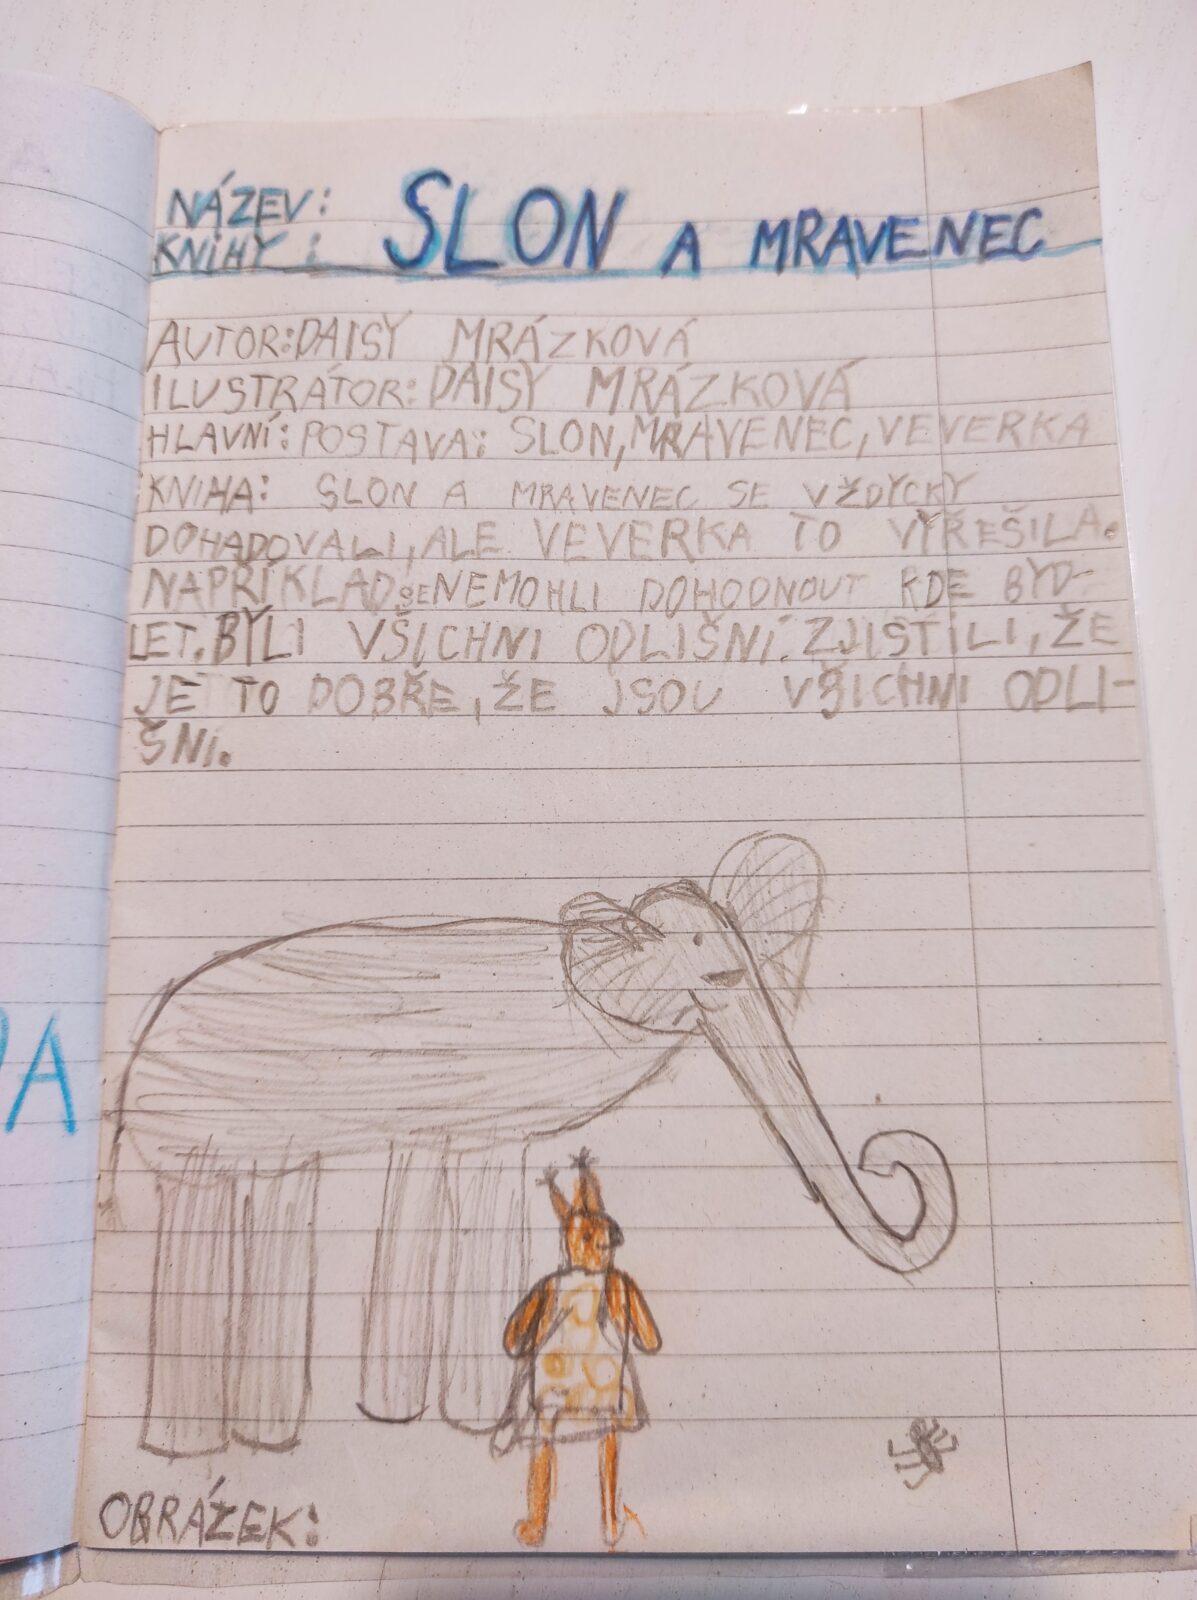 NÁZEV:
KNIHY: SLON A MRAVENEC
AUTOR: DAISY MRÁZKOVÁ
ILUSTRÁTOR: DAISY MRÁZKOVÁ
HLAVNÍ: POSTAVA: SLON, MRAVENEC, VEVERKA
KNIHA: SLON A MRAVENEC SE VŽDYCKY
DOHADOVALI, ALE VEVERKA TO VYŘEŠILA.
NAPŘÍKLAD SE NEMOHLI DOHODNOUT KDE BYD-
LET. BYLI VŠICHNI ODLIŠNÍ. ZJISTILI, ŽE
JE TO DOBŘE, ŽE JSOU VŠICHNI ODLI-
ŠNI.
OBRÁZEK: